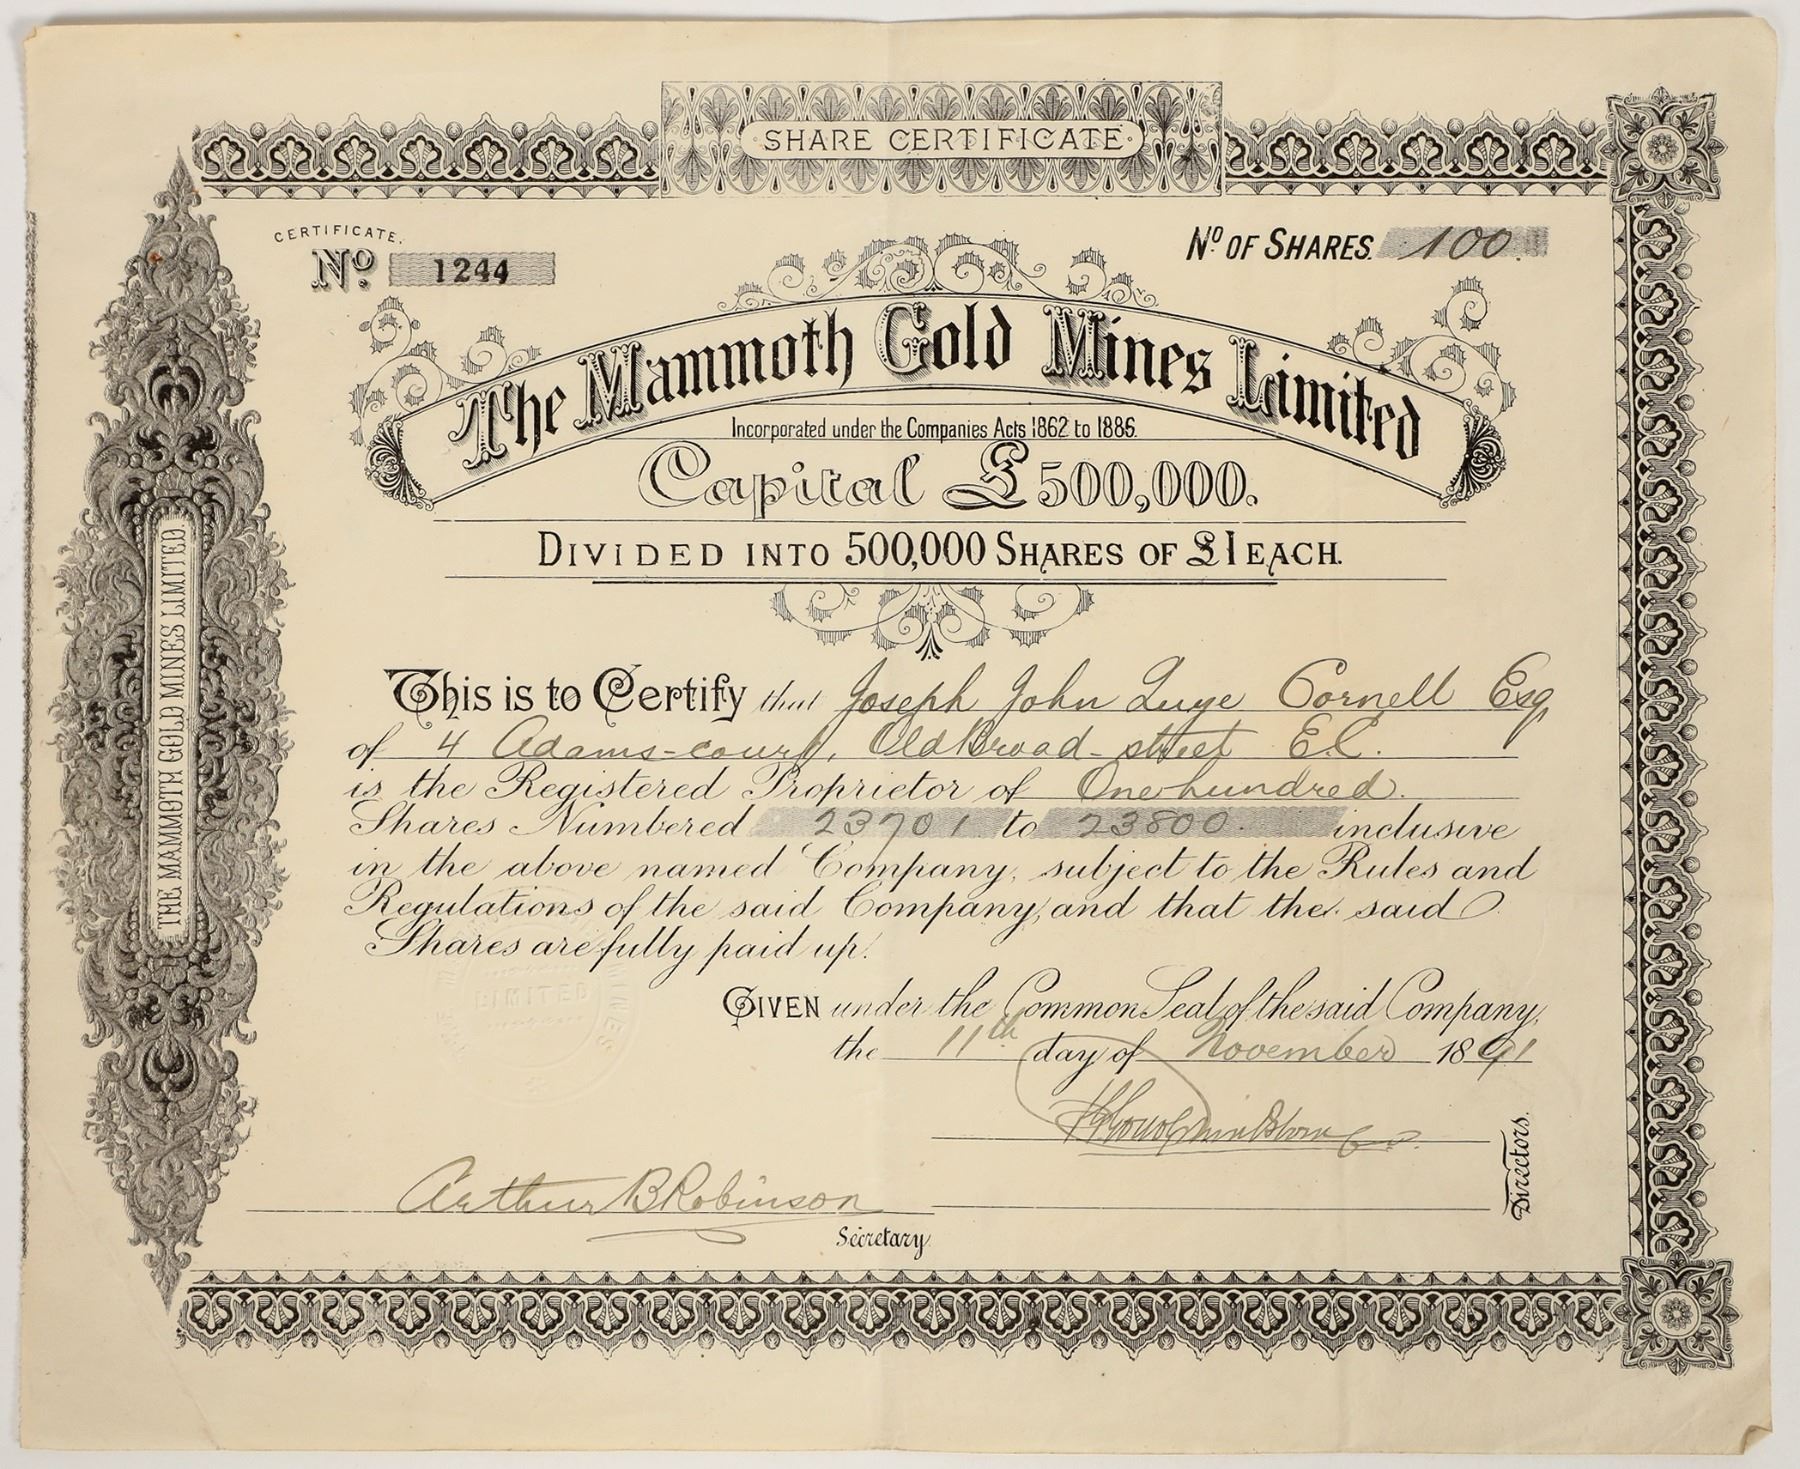 SHARE CERTIFICATE
CERTIFICATE.
No. 1244
No OF SHARES. 100.
The Mammoth Gold Mines Limited
Incorporated under the Companies Acts 1862 to 1886.
Capital £500,000.
DIVIDED INTO 500,000 SHARES OF £1 EACH.
This is to Certify that Joseph John Cornell Esq
of 4 Adams-court, Old Broad-street E.C.
is the Registered Proprietor of One hundred.
Shares Numbered 23701 to 23800. inclusive
in the above named Company, subject to the Rules and
Regulations of the said Company, and that the said
Shares are fully paid up.
GIVEN under the Common Seal of the said Company,
the 11th day of November 1891
Directors.
Arthur B Robinson
Secretary.
THE MAMMOTH GOLD MINES LIMITED
LIMITED
MINES